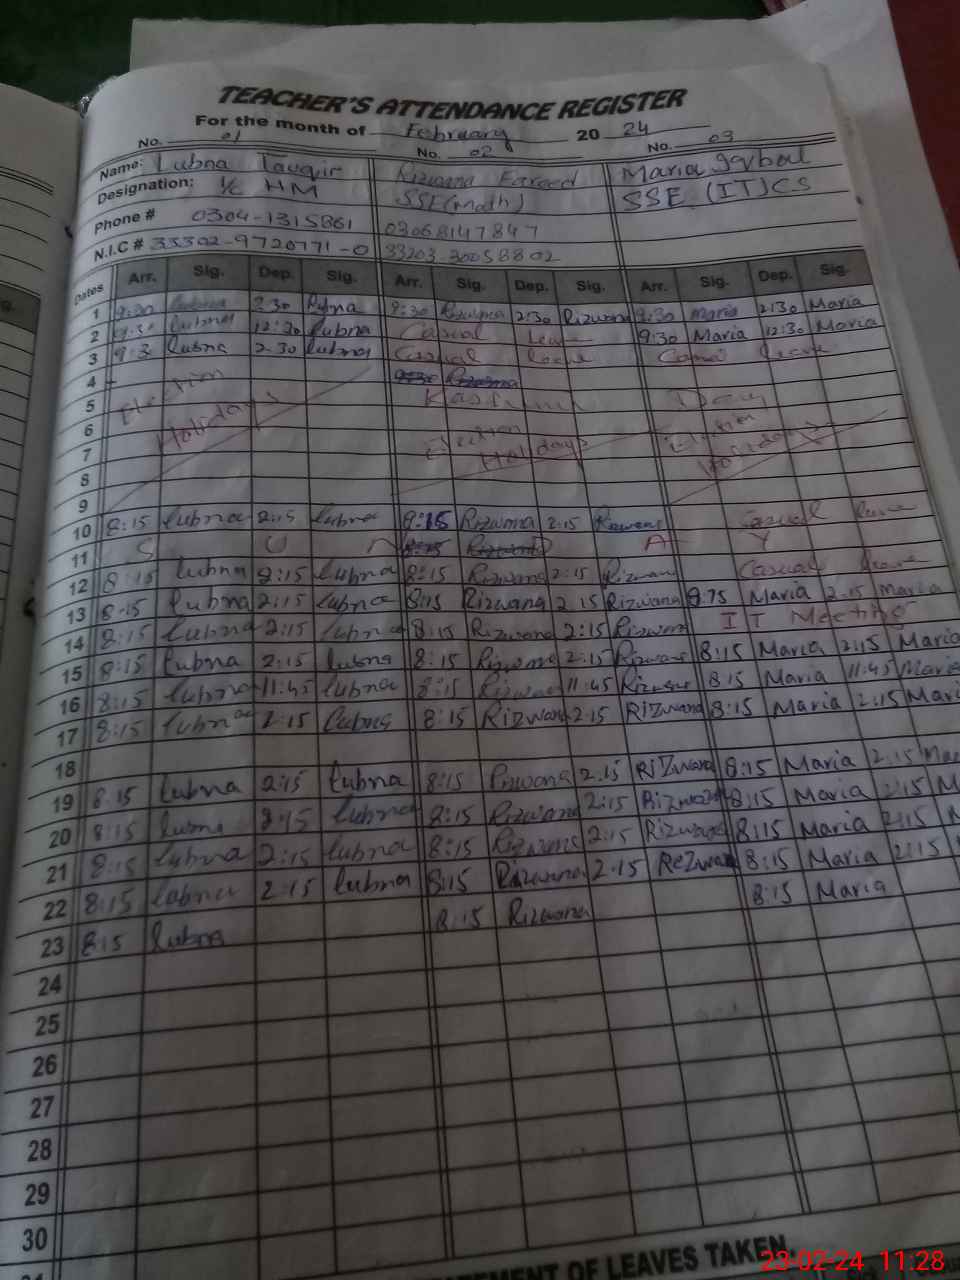 TEACHER'S ATTENDANCE REGISTER
For the month of February 20 24
No. 01 No. 02 No. 03
Name: Lubna Tauqir Rizwana Fareed Maria Iqbal
Designation: I/C HM SSE(Math) SSE (IT)CS
Phone # 0304-1315861 03068147847
N.I.C # 33302-9720771-0 33203-3005880 2
Dates Arr. Sig. Dep. Sig. Arr. Sig. Dep. Sig. Arr. Sig. Dep. Sig.
1 9:30 Lubna 2:30 Lubna 9:30 Rizwana 2:30 Rizwana 9:30 Maria 2:30 Maria
2 9:30 lubna 12:30 lubna Casual leave 9:30 Maria 12:30 Maria
3 9:30 lubna 2:30 lubna Casual leave Casual leave
4 9:30 Rizwana
5 Election Kashmir Day
6 Holidays Election Election
7 Holidays Holidays
8
9
10 8:15 lubna 2:15 lubna 8:15 Rizwana 2:15 Rizwana Casual leave
11 S U N 8:15 Rizwana D A Y
12 8:15 lubna 2:15 lubna 8:15 Rizwana 2:15 Rizwana Casual leave
13 8:15 lubna 2:15 lubna 8:15 Rizwana 2:15 Rizwana 8:15 Maria 2:15 Maria
14 8:15 lubna 2:15 lubna 8:15 Rizwana 2:15 Rizwana IT Meeting
15 8:15 lubna 2:15 lubna 8:15 Rizwana 2:15 Rizwana 8:15 Maria 2:15 Maria
16 8:15 lubna 11:45 lubna 8:15 Rizwana 11:45 Rizwana 8:15 Maria 11:45 Maria
17 8:15 lubna 2:15 lubna 8:15 Rizwana 2:15 Rizwana 8:15 Maria 2:15 Mari
18
19 8:15 lubna 2:15 lubna 8:15 Rizwana 2:15 Rizwana 8:15 Maria 2:15 Ma
20 8:15 lubna 2:15 lubna 8:15 Rizwana 2:15 Rizwana 8:15 Maria 2:15 M
21 8:15 lubna 2:15 lubna 8:15 Rizwana 2:15 Rizwana 8:15 Maria 2:15
22 8:15 lubna 2:15 lubna 8:15 Rizwana 2:15 Rezwan 8:15 Maria 2:15
23 8:15 lubna 8:15 Rizwana 8:15 Maria
24
25
26
27
28
29
30
STATEMENT OF LEAVES TAKEN
23-02-24 11:28